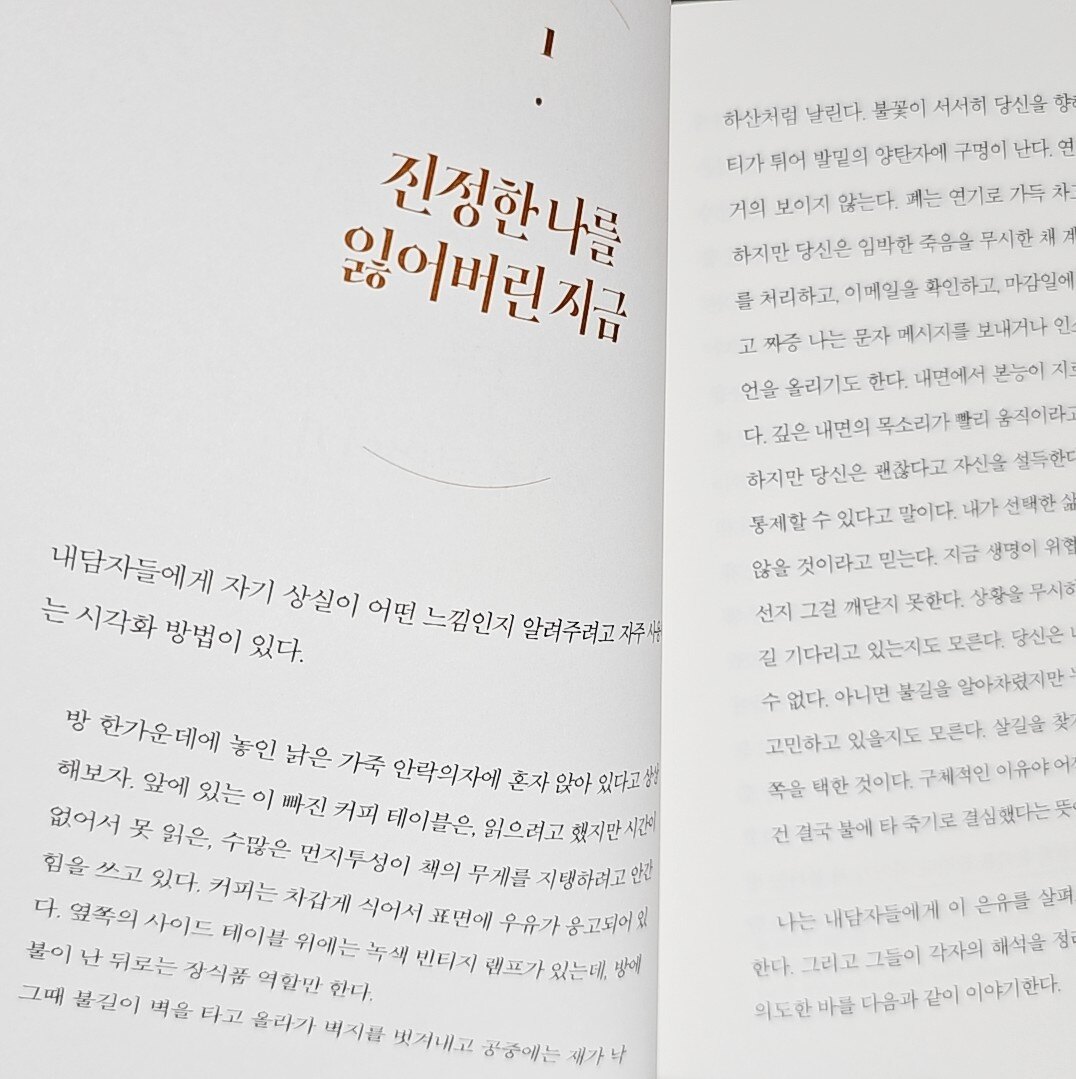 1
진정한 나를
잃어버린 지금
내담자들에게 자기 상실이 어떤 느낌인지 알려주려고 자주 사용
는 시각화 방법이 있다.
방 한가운데에 놓인 낡은 가죽 안락의자에 혼자 앉아 있다고 상상
해보자. 앞에 있는 이 빠진 커피 테이블은, 읽으려고 했지만 시간이
없어서 못 읽은, 수많은 먼지투성이 책의 무게를 지탱하려고 안간
힘을 쓰고 있다. 커피는 차갑게 식어서 표면에 우유가 응고되어 있
다. 옆쪽의 사이드 테이블 위에는 녹색 빈티지 램프가 있는데, 방에
불이 난 뒤로는 장식품 역할만 한다.
그때 불길이 벽을 타고 올라가 벽지를 벗겨내고 공중에는 재가 낙
하산처럼 날린다. 불꽃이 서서히 당신을 향해
티가 튀어 발밑의 양탄자에 구멍이 난다.
거의 보이지 않는다. 폐는 연기로 가득 차고
하지만 당신은 임박한 죽음을 무시한 채
를 처리하고, 이메일을 확인하고, 마감일에
고 짜증 나는 문자 메시지를 보내거나
언을 올리기도 한다. 내면에서 본능이
다. 깊은 내면의 목소리가 빨리 움직이라고
하지만 당신은 괜찮다고 자신을 설득한다
통제할 수 있다고 말이다. 내가 선택한
않을 것이라고 믿는다. 지금 생명이
선지 그걸 깨닫지 못한다. 상황을
길 기다리고 있는지도 모른다. 당신은
수 없다. 아니면 불길을 알아차렸지만
고민하고 있을지도 모른다. 살길을
쪽을 택한 것이다. 구체적인 이유야
건 결국 불에 타 죽기로 결심했다는
나는 내담자들에게 이 은유를
한다. 그리고 그들이 각자의 해석을
의도한 바를 다음과 같이 이야기한다.